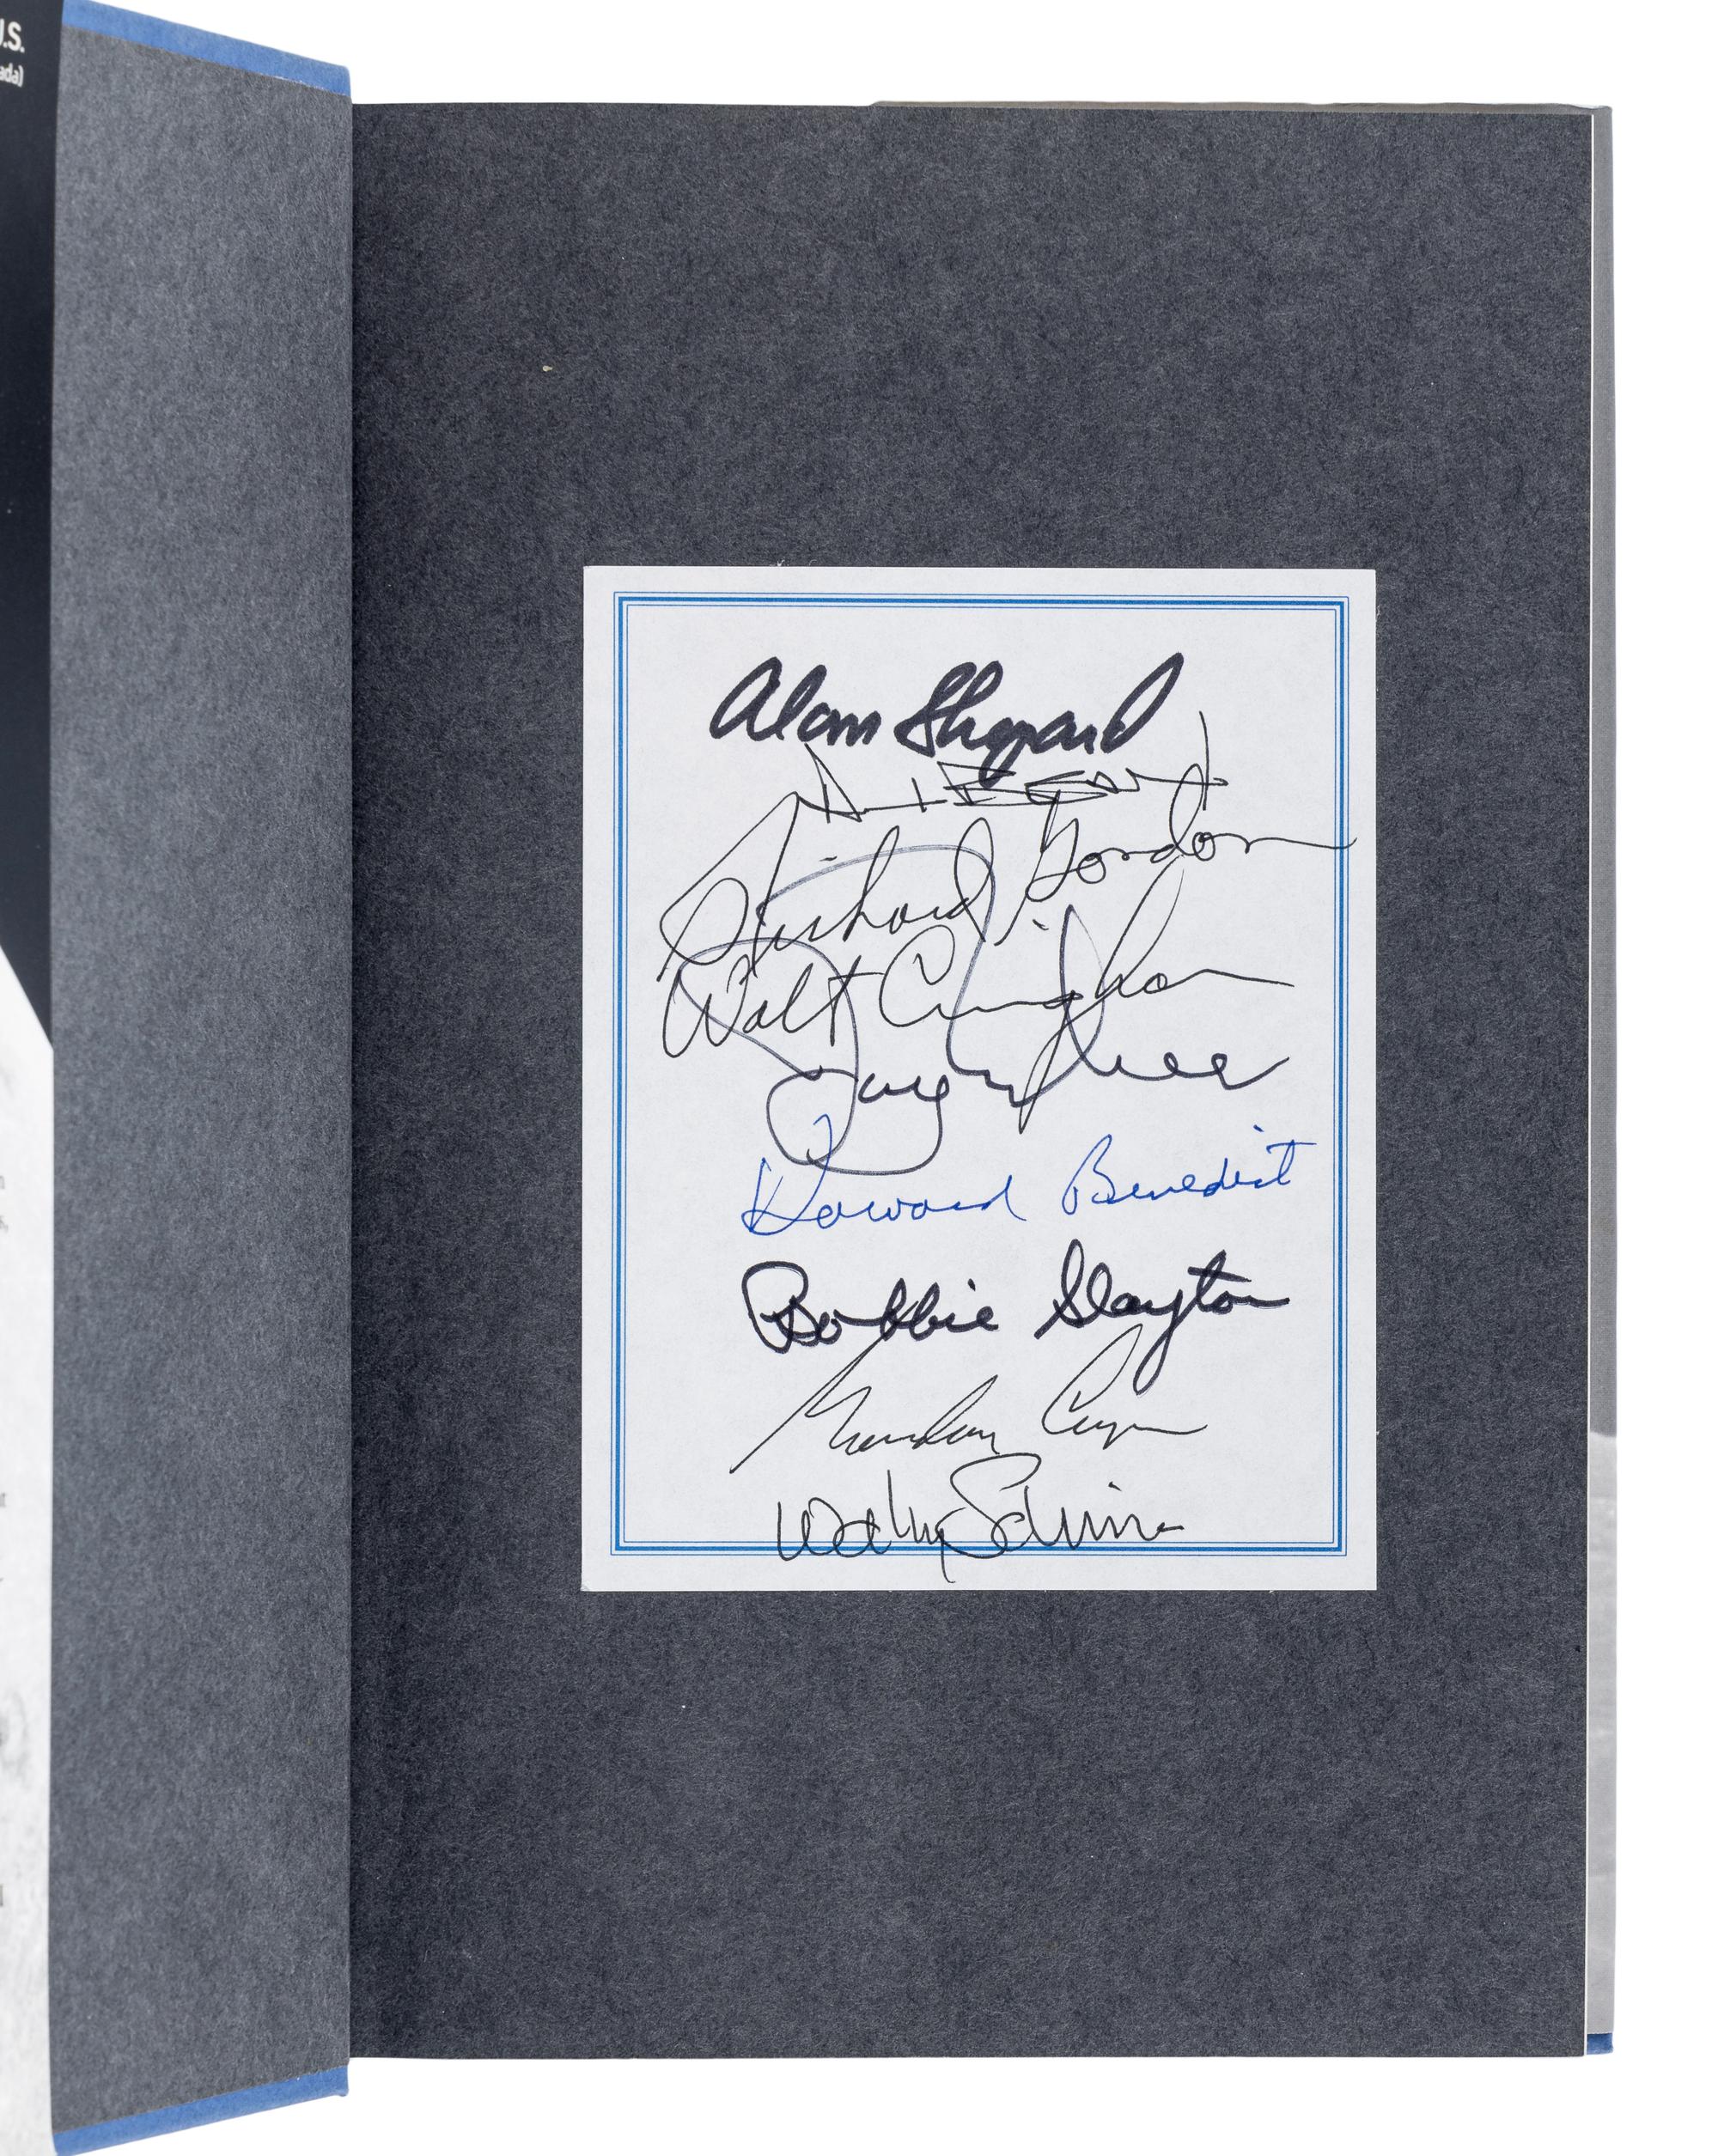 U.S.
Alan Shepard
Richard Gordon
Walt Cunningham
Howard Benedict
Bobbie Slayton
Gordon Cooper
Wally Schirra